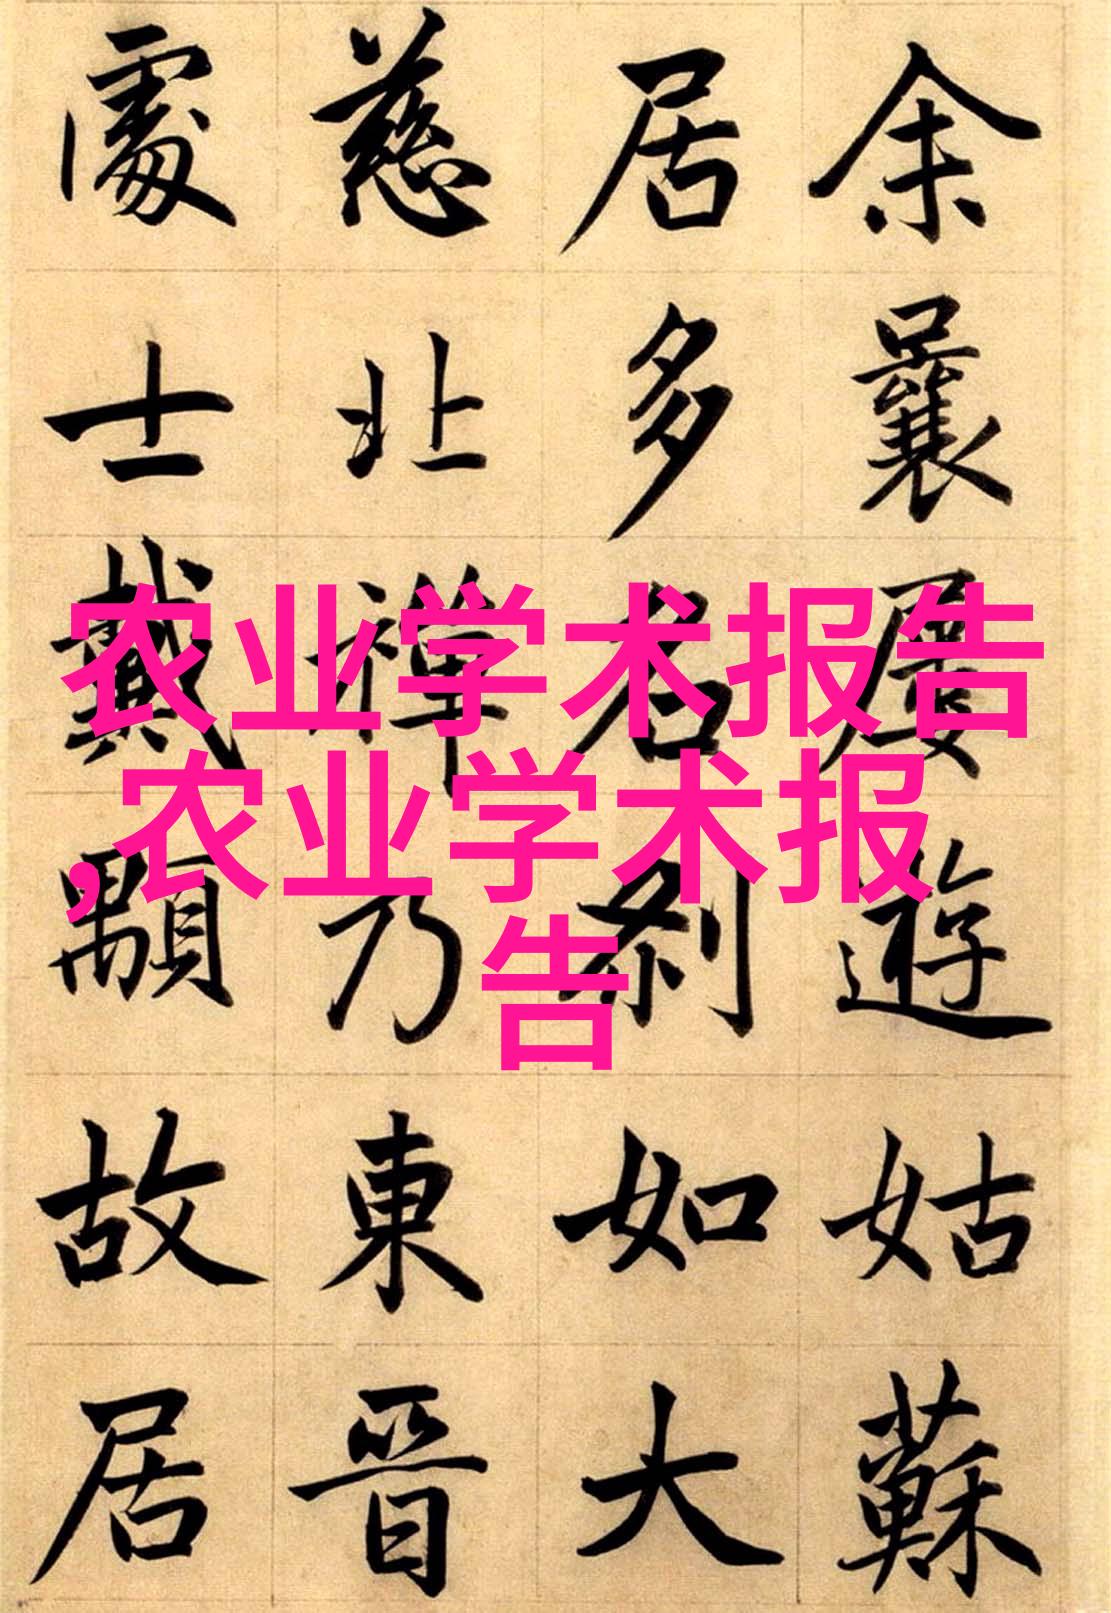 余曩屢遊姑蘇
居多名刹如大
慈北禅乃東晉
處士戴顒故居
农业学术报告
,农业学术报
告